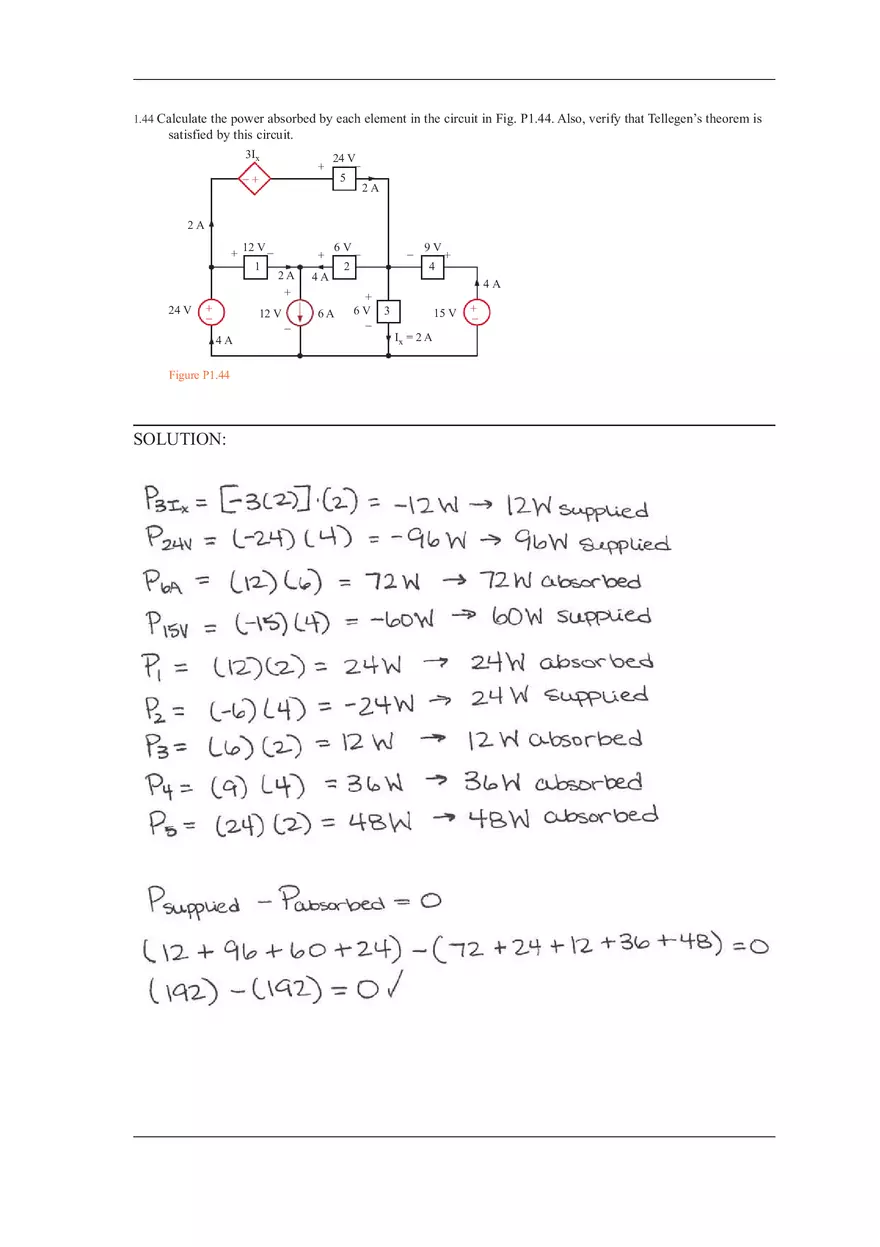 1.44 Calculate the power absorbed by each element in the circuit in Fig. P1.44. Also, verify that Tellegen's theorem is
satisfied by this circuit.
3Iₓ
24 V
+ −
− +
5
2 A
2 A
12 V
+ −
6 V
+ −
9 V
− +
1
2
4
2 A
4 A
4 A
24 V
+
−
12 V
+
−
6 A
6 V
+
−
3
15 V
+
−
4 A
Iₓ = 2 A
Figure P1.44
SOLUTION:
P₃Iₓ = [-3(2)]·(2) = -12W → 12W supplied
P₂₄V = (-24)(4) = -96W → 96W supplied
P₆A = (12)(6) = 72W → 72W absorbed
P₁₅V = (-15)(4) = -60W → 60W supplied
P₁ = (12)(2) = 24W → 24W absorbed
P₂ = (-6)(4) = -24W → 24W supplied
P₃ = (6)(2) = 12W → 12W absorbed
P₄ = (9)(4) = 36W → 36W absorbed
P₅ = (24)(2) = 48W → 48W absorbed
Psupplied - Pabsorbed = 0
(12 + 96 + 60 + 24) - (72 + 24 + 12 + 36 + 48) = 0
(192) - (192) = 0 ✓